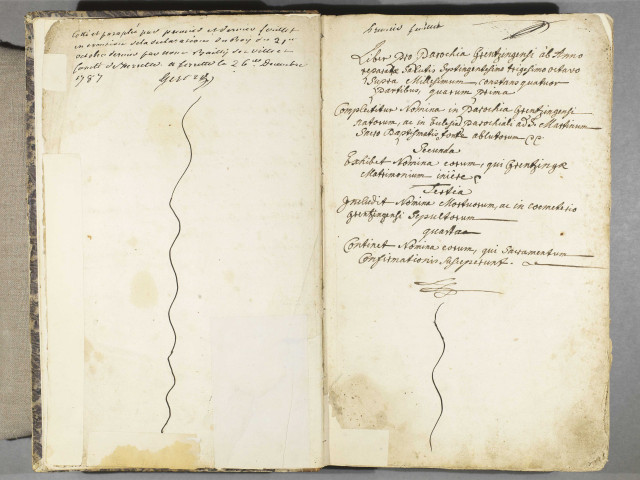 Cotté et paraphé par premier et dernier feuillet
en execution de la declaration du Roy du 21
octobre dernier par nous Bailly de ville et
Comté de ferrette a ferrette le 26 Decembre
1787
premier feuillet
Liber pro Parochia Grentzingensi ab Anno
reparatæ Salutis Septingentesimo trigesimo octavo
Supra Millesimum constans quatuor
partibus, quarum prima
Complectitur Nomina in Parochia Grentzingensi
natorum, ac in Ecclesia Parochiali ad S. Martinum
Sacro Baptismatis fonte ablutorum
Secunda
Exhibet Nomina eorum, qui Grentzingæ
Matrimonium iniere
Tertia
Includit Nomina Mortuorum, ac in coemeterio
Grentzingensi Sepultorum
quarta
Continet Nomina eorum, qui Sacramentum
Confirmationis susceperunt.